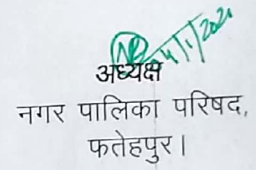 4/1/2021
अध्यक्ष
नगर पालिका परिषद,
फतेहपुर।